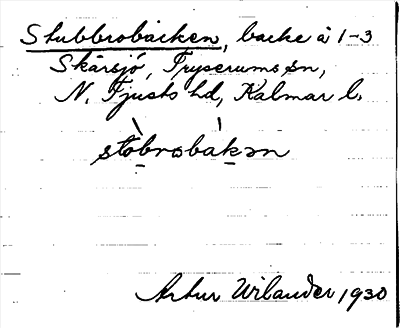 Stubbrobacken, backe å 1-3
Skärsjö, Tryserums sn,
N. Tjusts hd, Kalmar l.
stòbrobàkən
Artur Wilander 1930